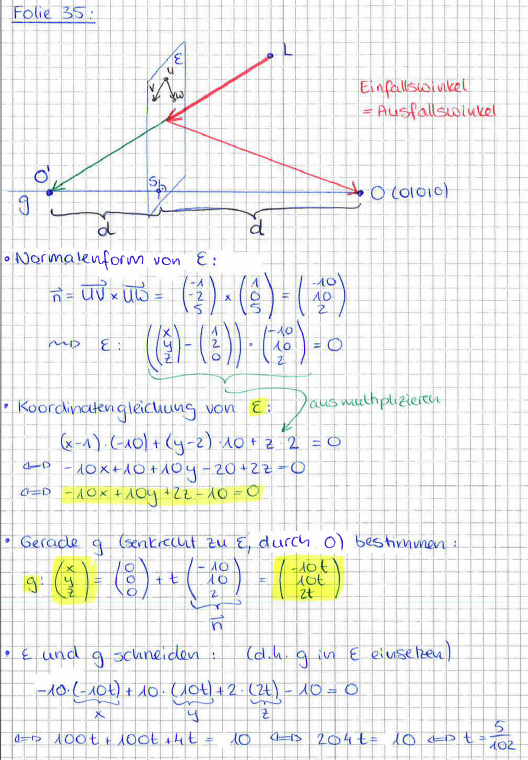 Folie 35:
ε
L
u
v
w
Einfallswinkel
= Ausfallswinkel
O'
S
O (0|0|0)
g
d
d
• Normalenform von ε:
n⃗ = UV⃗ × UW⃗ = (-1 -2 5) × (1 0 5) = (-10 10 2)
~> ε: ((x y z) - (1 2 0)) · (-10 10 2) = 0
ausmultiplizieren
• Koordinatengleichung von ε:
(x-1)·(-10) + (y-2)·10 + z·2 = 0
⇔ -10x+10+10y-20+2z=0
⇔ -10x+10y+2z-10=0
• Gerade g (senkrecht zu ε, durch O) bestimmen:
g: (x y z) = (0 0 0) + t (-10 10 2) = (-10t 10t 2t)
n⃗
• ε und g schneiden: (d.h. g in ε einsetzen)
-10·(-10t) + 10·(10t) + 2·(2t) - 10 = 0
x y z
⇔ 100t + 100t + 4t = 10 ⇔ 204t = 10 ⇔ t = 5/102